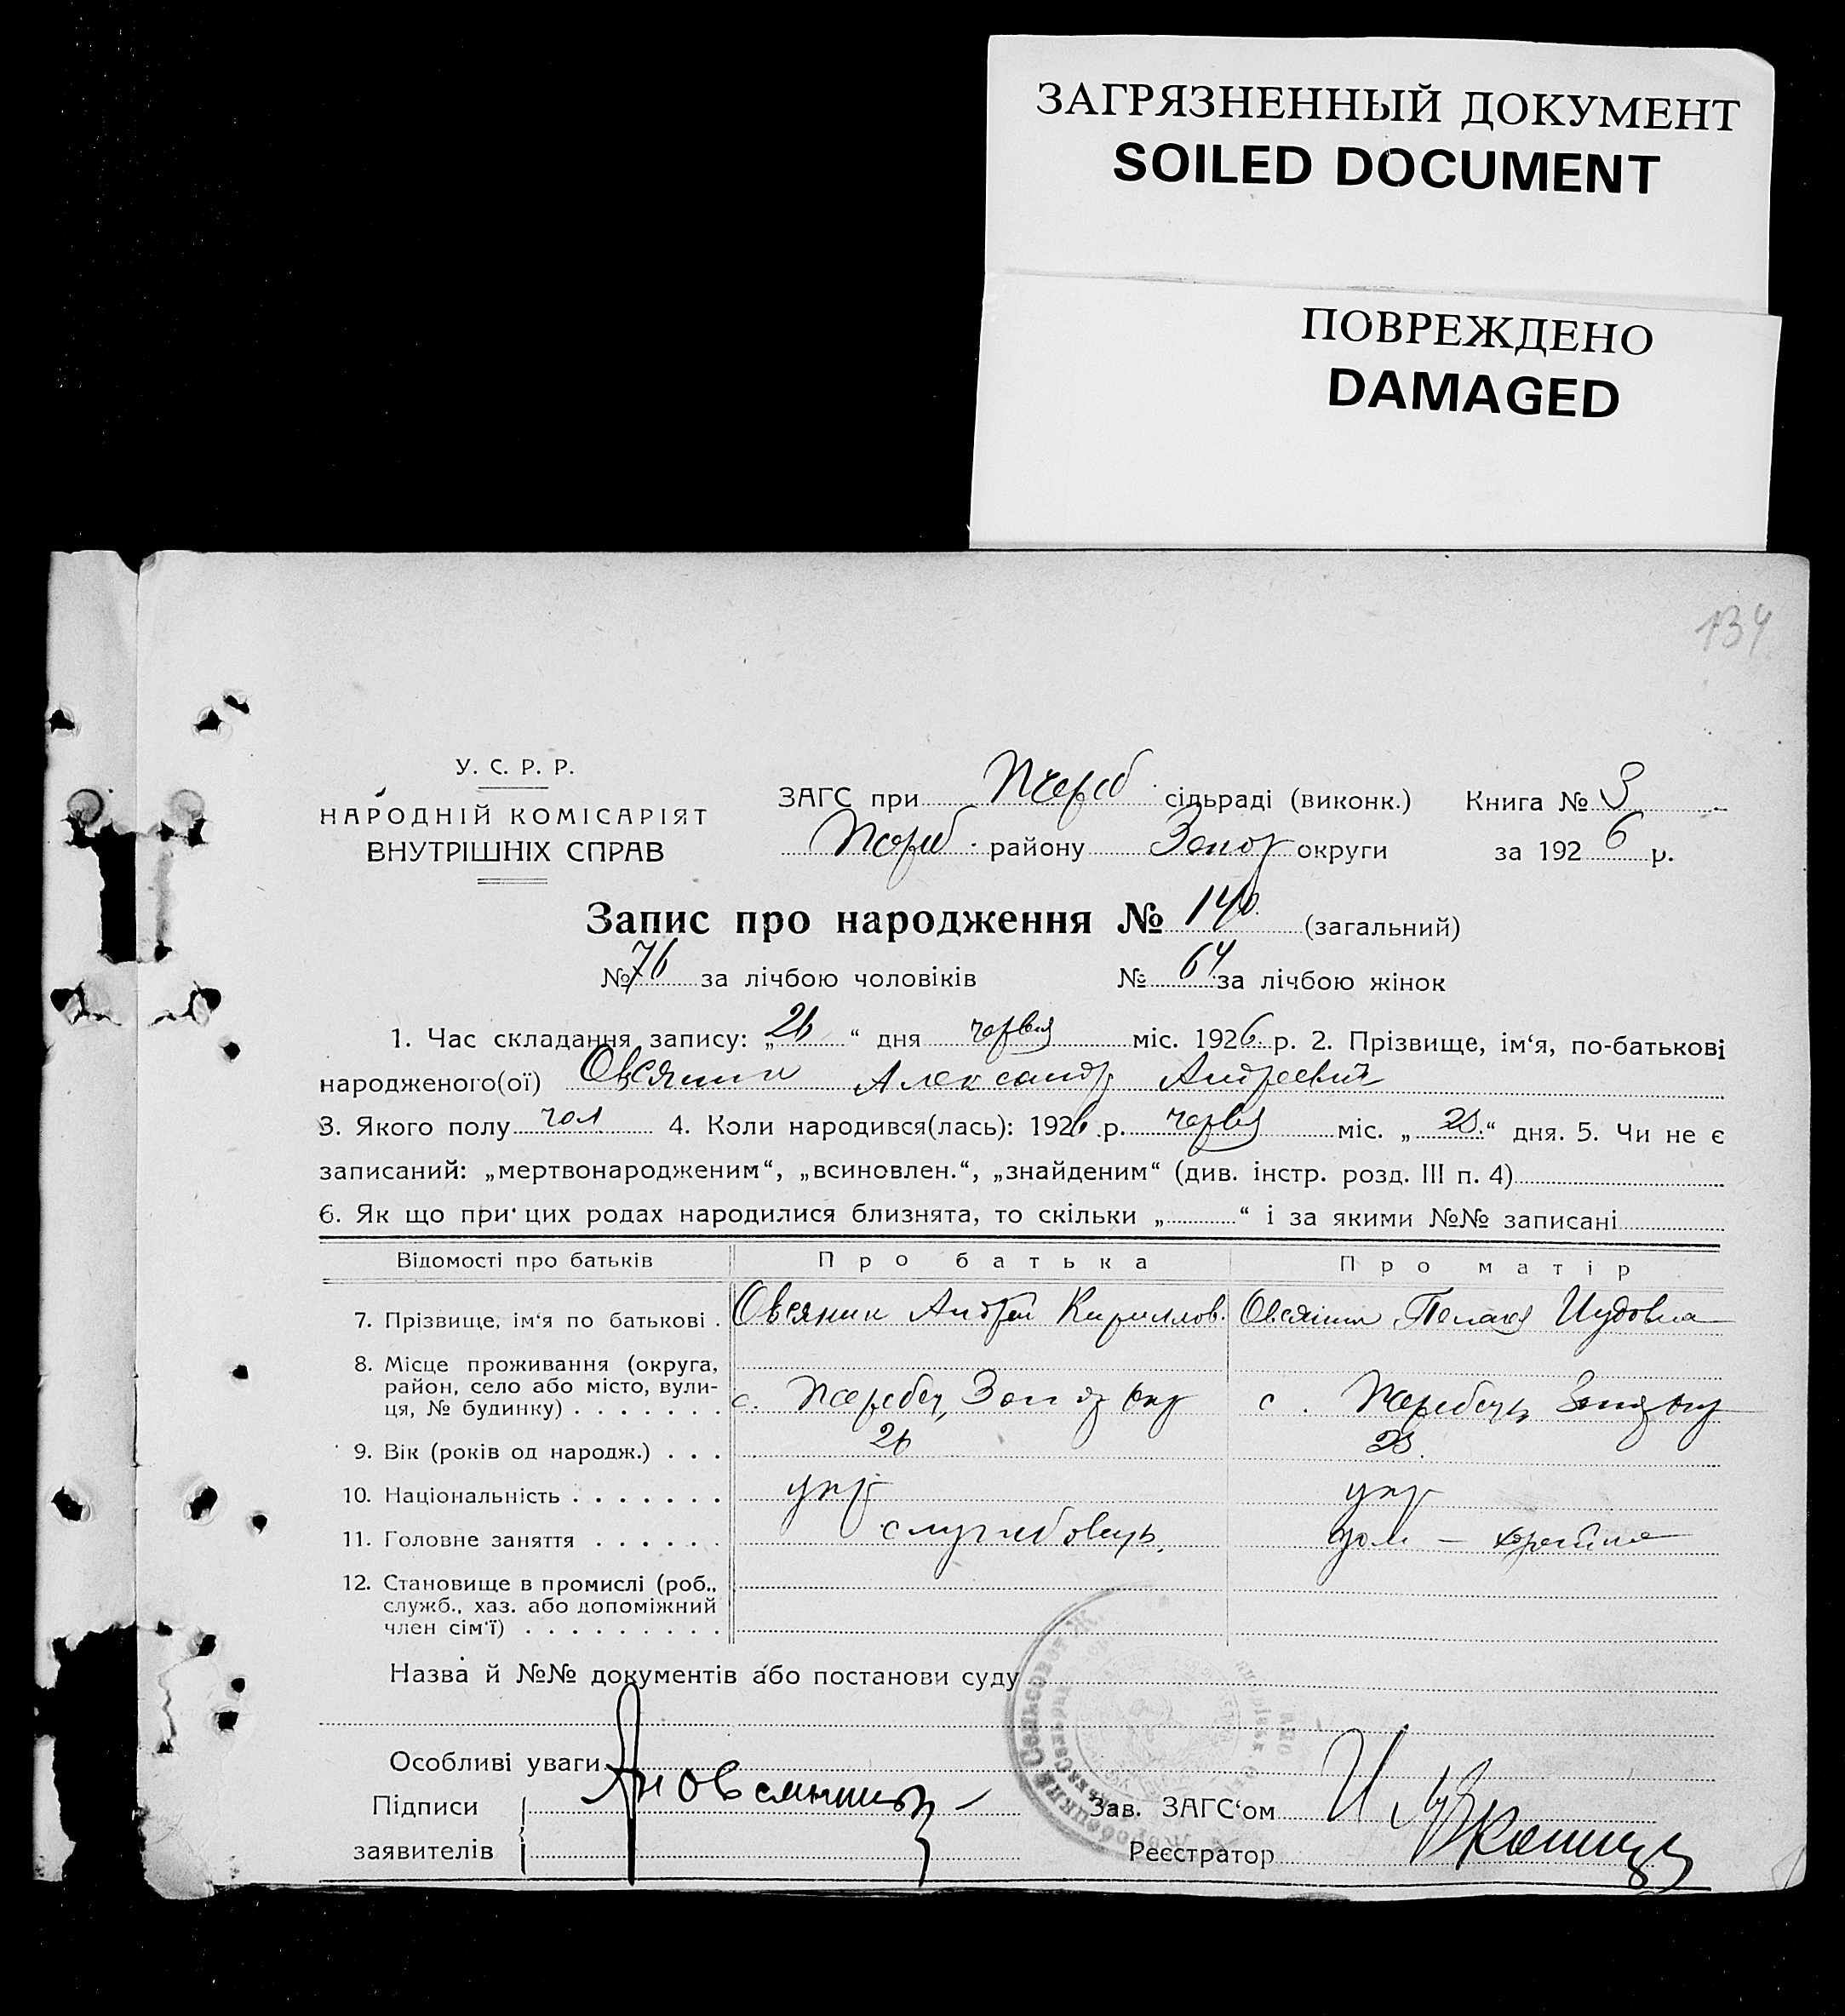 ЗАГРЯЗНЕННЫЙ ДОКУМЕНТ
SOILED DOCUMENT
ПОВРЕЖДЕНО
DAMAGED
134
У. С. Р. Р.
НАРОДНІЙ КОМІСАРІЯТ
ВНУТРІШНІХ СПРАВ
ЗАГС при Жереб. сільраді (виконк.) Книга № 3
Жереб. району Запор округи за 1926 р.
Запис про народження № 140. (загальний)
№ 76 за лічбою чоловіків № 64 за лічбою жінок
1. Час складання запису: „26“ дня червня міс. 1926 р. 2. Прізвище, ім‘я, по-батькові
народженого(ої) Овсянин Александр Андреевич
3. Якого полу чол 4. Коли народився(лась): 1926 р. червня міс. „23.“ дня. 5. Чи не є
записаний: „мертвонародженим“, „всиновлен.“, „знайденим“ (див. інстр. розд. III п. 4)
6. Як що при цих родах народилися близнята, то скільки „ “ і за якими №№ записані
Відомості про батьків Про батька Про матір
7. Прізвище, ім‘я по батькові . Овсянин Андрей Кириллов. Овсянин Пелагея Иудовна
8. Місце проживання (округа,
район, село або місто, вули-
ця, № будинку) . . . . . . . с. Жеребец, Запор окр с. Жеребець, Запор окр
9. Вік (років од народж.) . . . 26 23.
10. Національність . . . . . . . укр укр
11. Головне заняття . . . . . . службовець, дом —
12. Становище в промислі (роб.,
служб., хаз. або допоміжний
член сім‘ї) . . . . . . . . .
Назва й №№ документів або постанови суду
Особливі уваги
Підписи
заявителів
Зав. ЗАГС‘ом
Реєстратор